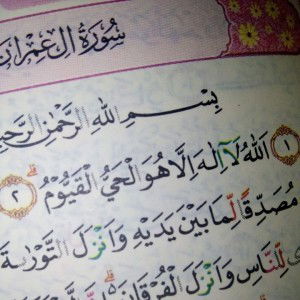 سُوْرَةُ اٰلِ عِمْرَانَ
بِسْمِ اللهِ الرَّحْمٰنِ
١ اَللهُ لَآ اِلٰهَ اِلَّا هُوَ الْحَيُّ الْقَيُّوْمُ ۗ ٢
مُصَدِّقًا لِّمَا بَيْنَ يَدَيْهِ وَاَنْزَلَ التَّوْرٰىةَ
لِّلنَّاسِ وَاَنْزَلَ الْفُرْقَانَ ۗ